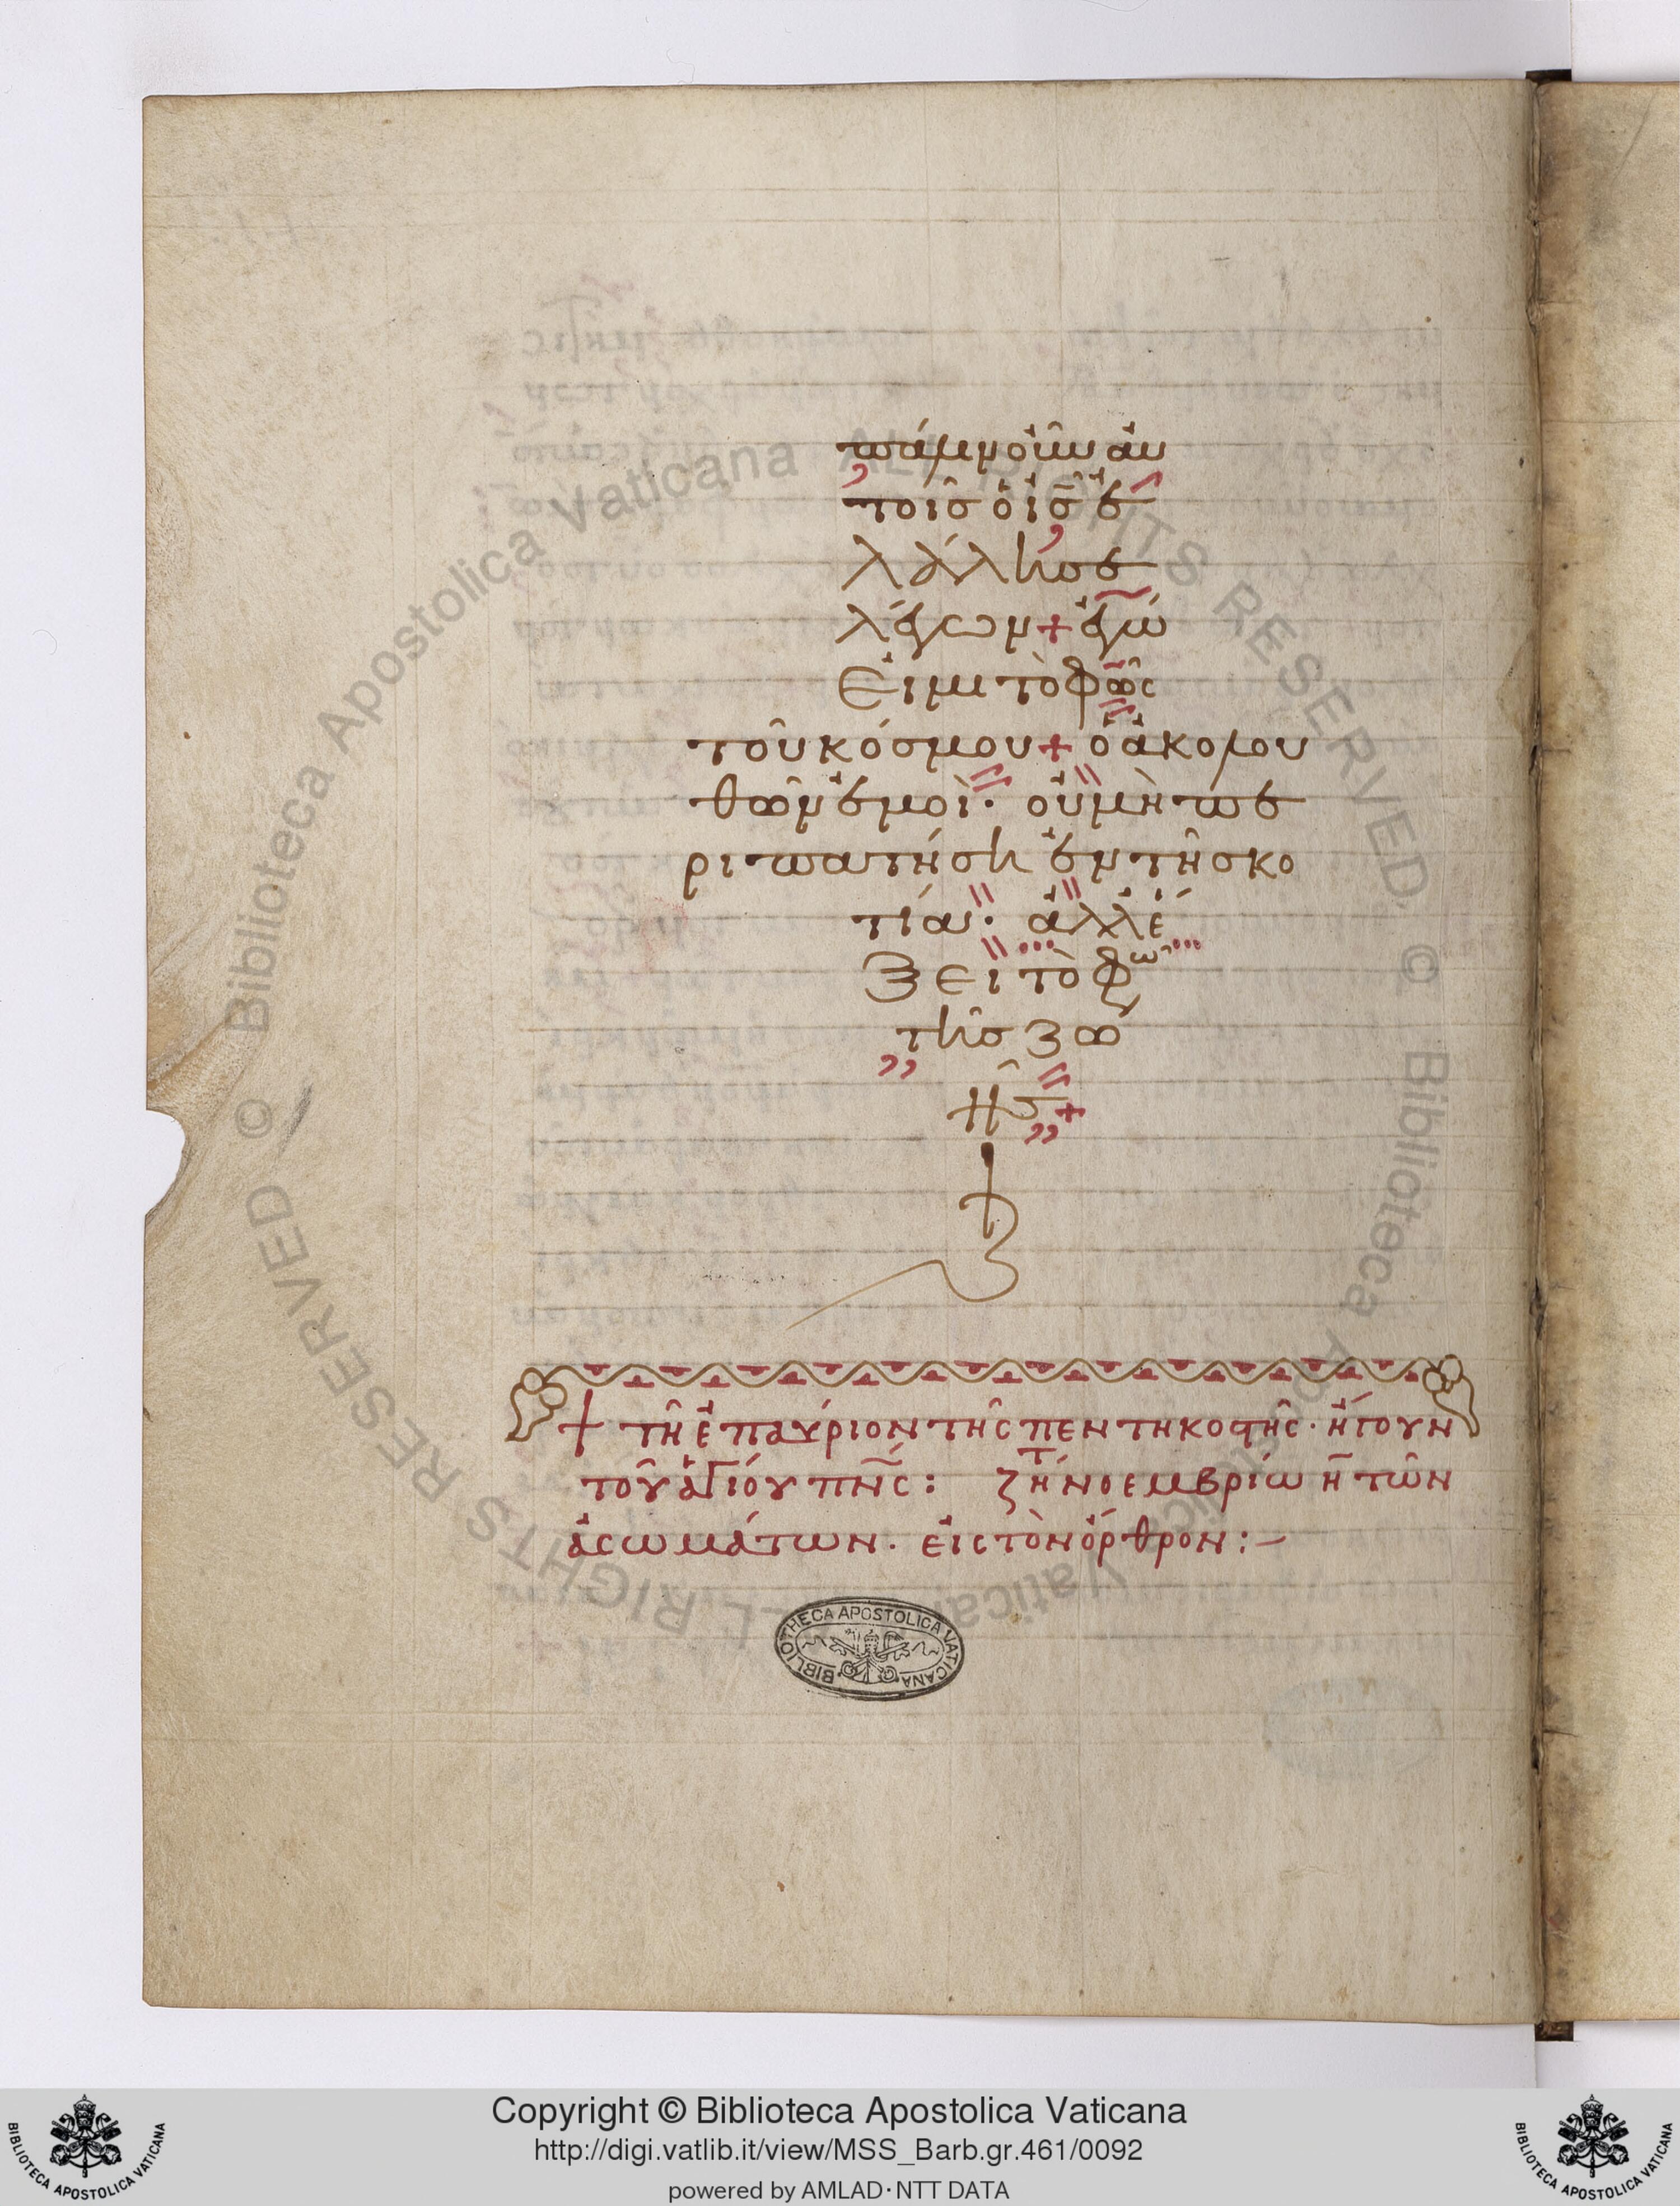 πάλιν οὖν αὐ
τοῖς ὁ ις ἐ
λάλησε
λέγων + ἐγώ
εἰμι τὸ φῶς
τοῦ κόσμου + ὁ ἀκολου
θῶν ἐμοὶ· οὐ μὴ πε
ριπατήση ἐν τῆ σκο
τία· ἀλλ' ἕ
ξει τὸ φω
τῆς ζω
ῆς +
+ τῆ ἐπαύριον τῆς πεντηκοστῆς· ἤγουν
τοῦ ἁγίου πνς: ζητ νοεμβρίω η τῶν
ἀσωμάτων. εἰς τὸν ὄρθρον:-
BIBLIOTHECA APOSTOLICA VATICANA
© Biblioteca Apostolica Vaticana ALL RIGHTS RESERVED © Biblioteca Apostolica Vaticana ALL RIGHTS RESERVED
Copyright © Biblioteca Apostolica Vaticana
http://digi.vatlib.it/view/MSS_Barb.gr.461/0092
powered by AMLAD·NTT DATA
BIBLIOTECA APOSTOLICA VATICANA
BIBLIOTECA APOSTOLICA VATICANA